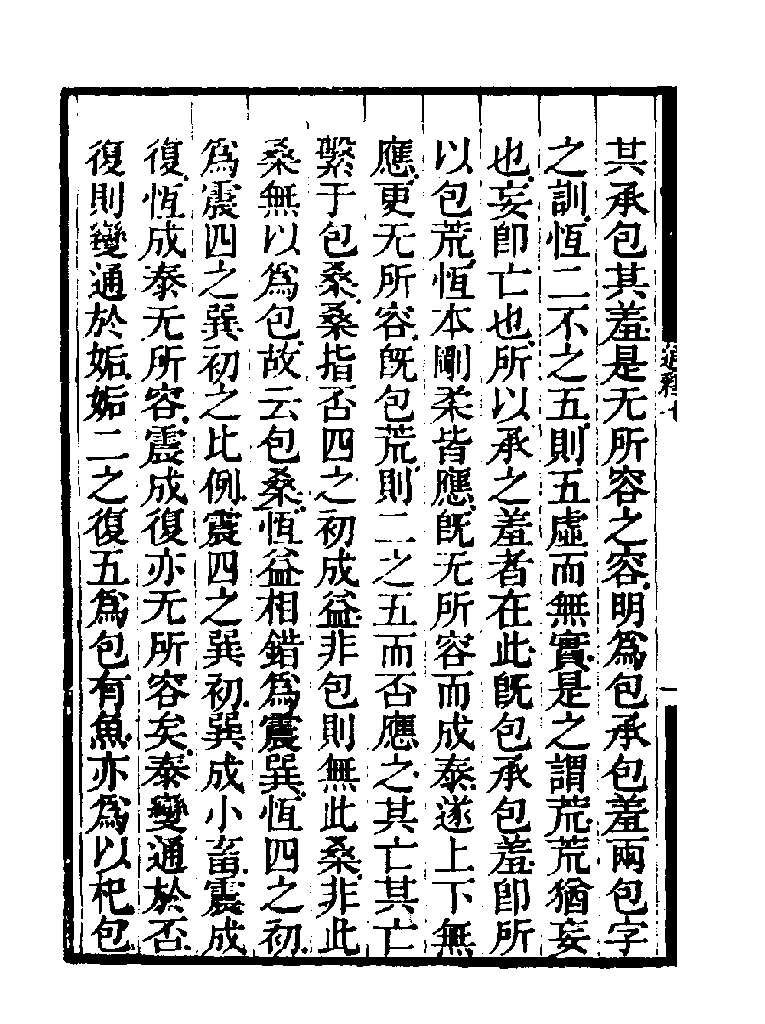 其承包其羞是无所容之容明爲包承包羞兩包字
之訓恆二不之五則五虛而無實是之謂荒荒猶妄
也妄卽亡也所以承之羞者在此旣包承包羞卽所
以包荒恆本剛柔皆應旣无所容而成泰遂上下無
應更无所容旣包荒則二之五而否應之其亡其亡
繫于包桑桑指否四之初成益非包則無此桑非此
桑無以爲包故云包桑恆益相錯爲震巽恆四之初
爲震四之巽初之比例震四之巽初巽成小畜震成
復恆成泰无所容震成復亦无所容矣泰變通於否
復則變通於姤姤二之復五爲包有魚亦爲以杞包